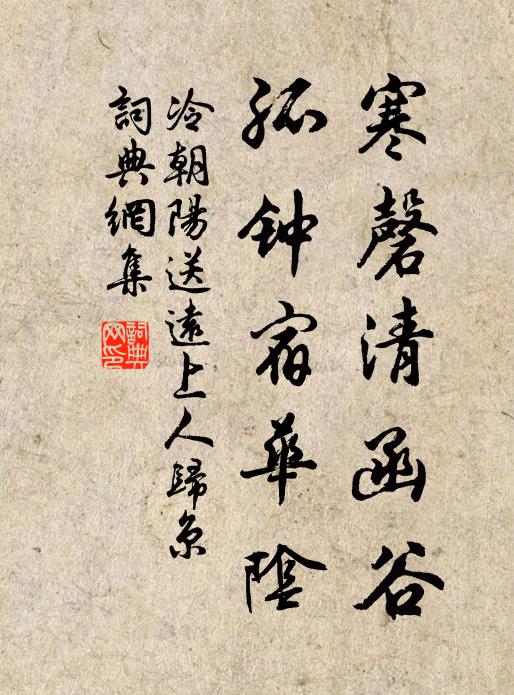 寒磬清函谷
孤钟宿華陰
冷朝陽送遠上人歸京
詞典網集
詞典網印